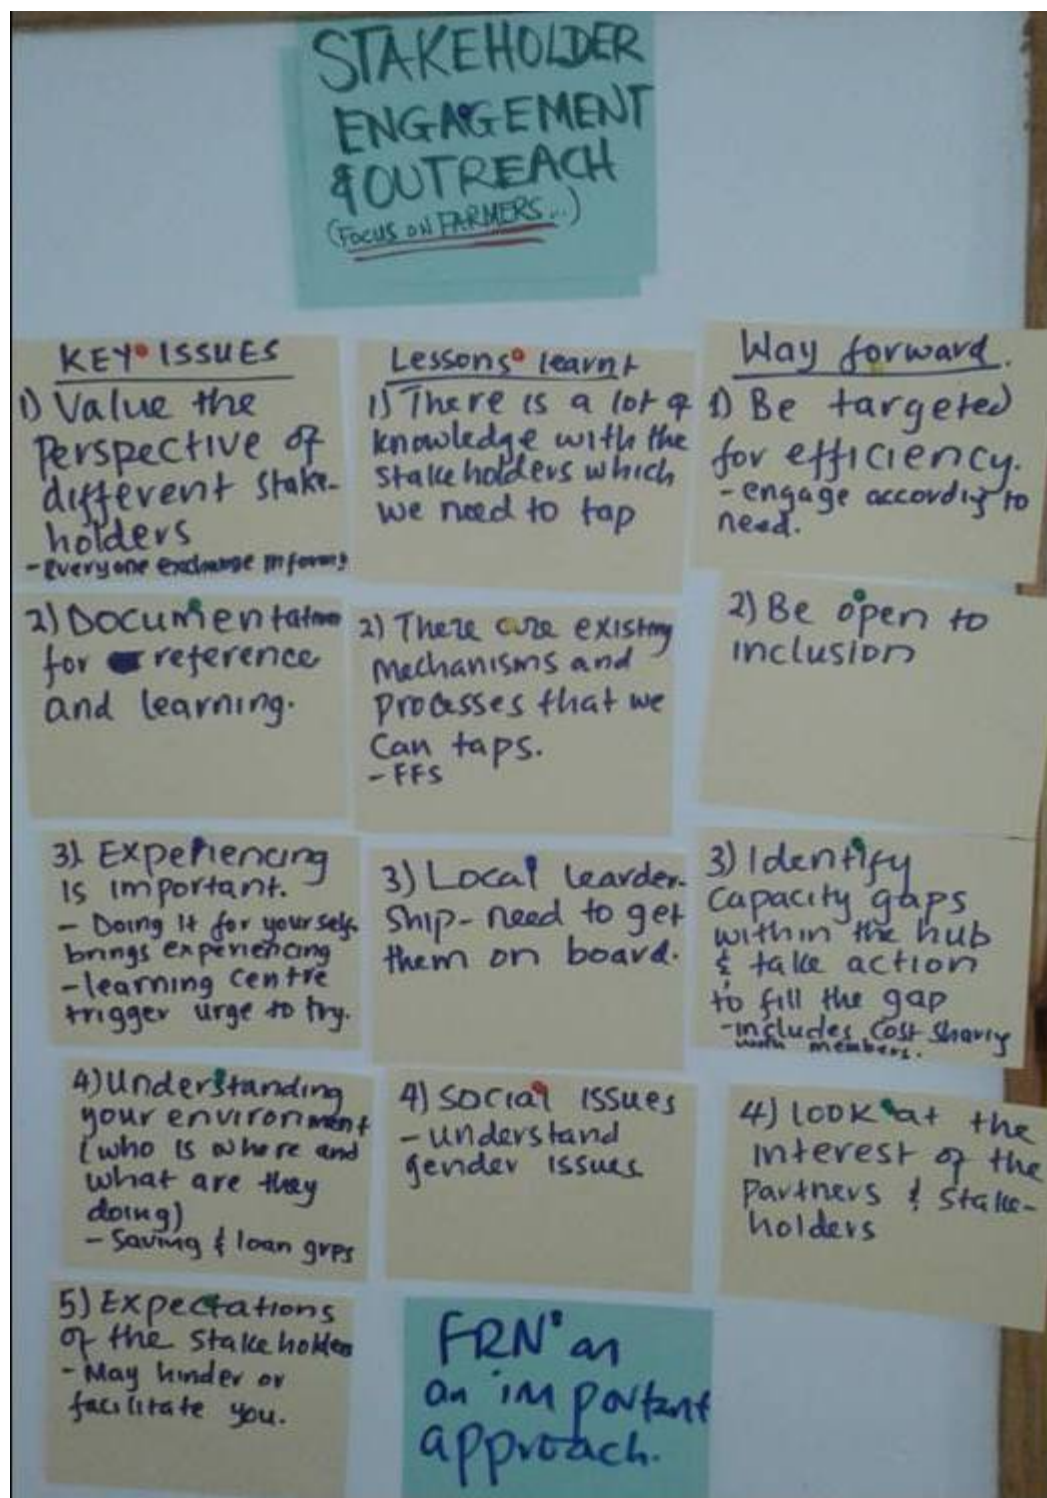 STAKEHOLDER
ENGAGEMENT
& OUTREACH
(FOCUS ON FARMERS...)
KEY ISSUES
1) Value the
Perspective of
different stake-
holders
- everyone exchange
2) Documentation
for reference
and learning.
3) Experiencing
is important.
- Doing it for yourself-
brings experiencing
- learning centre
trigger urge to try.
4) Understanding
your environment
(who is where and
what are they
doing)
- Saving & loan grps
5) Expectations
of the stakeholder
- May hinder or
facilitate you.
Lessons learnt
1) There is a lot of
knowledge with the
stakeholders which
we need to tap
2) There are existing
mechanisms and
processes that we
can taps.
- FFS
3) Local Learder-
ship - need to get
them on board.
4) social issues
- understand
gender issues
Way forward.
1) Be targeted
for efficiency.
- engage accordig to
need.
2) Be open to
inclusion
3) Identify
capacity gaps
within the hub
& take action
to fill the gap
- includes cost sharig
with members.
4) look at the
interest of the
partners & stake-
holders
FRN an
an important
approach.